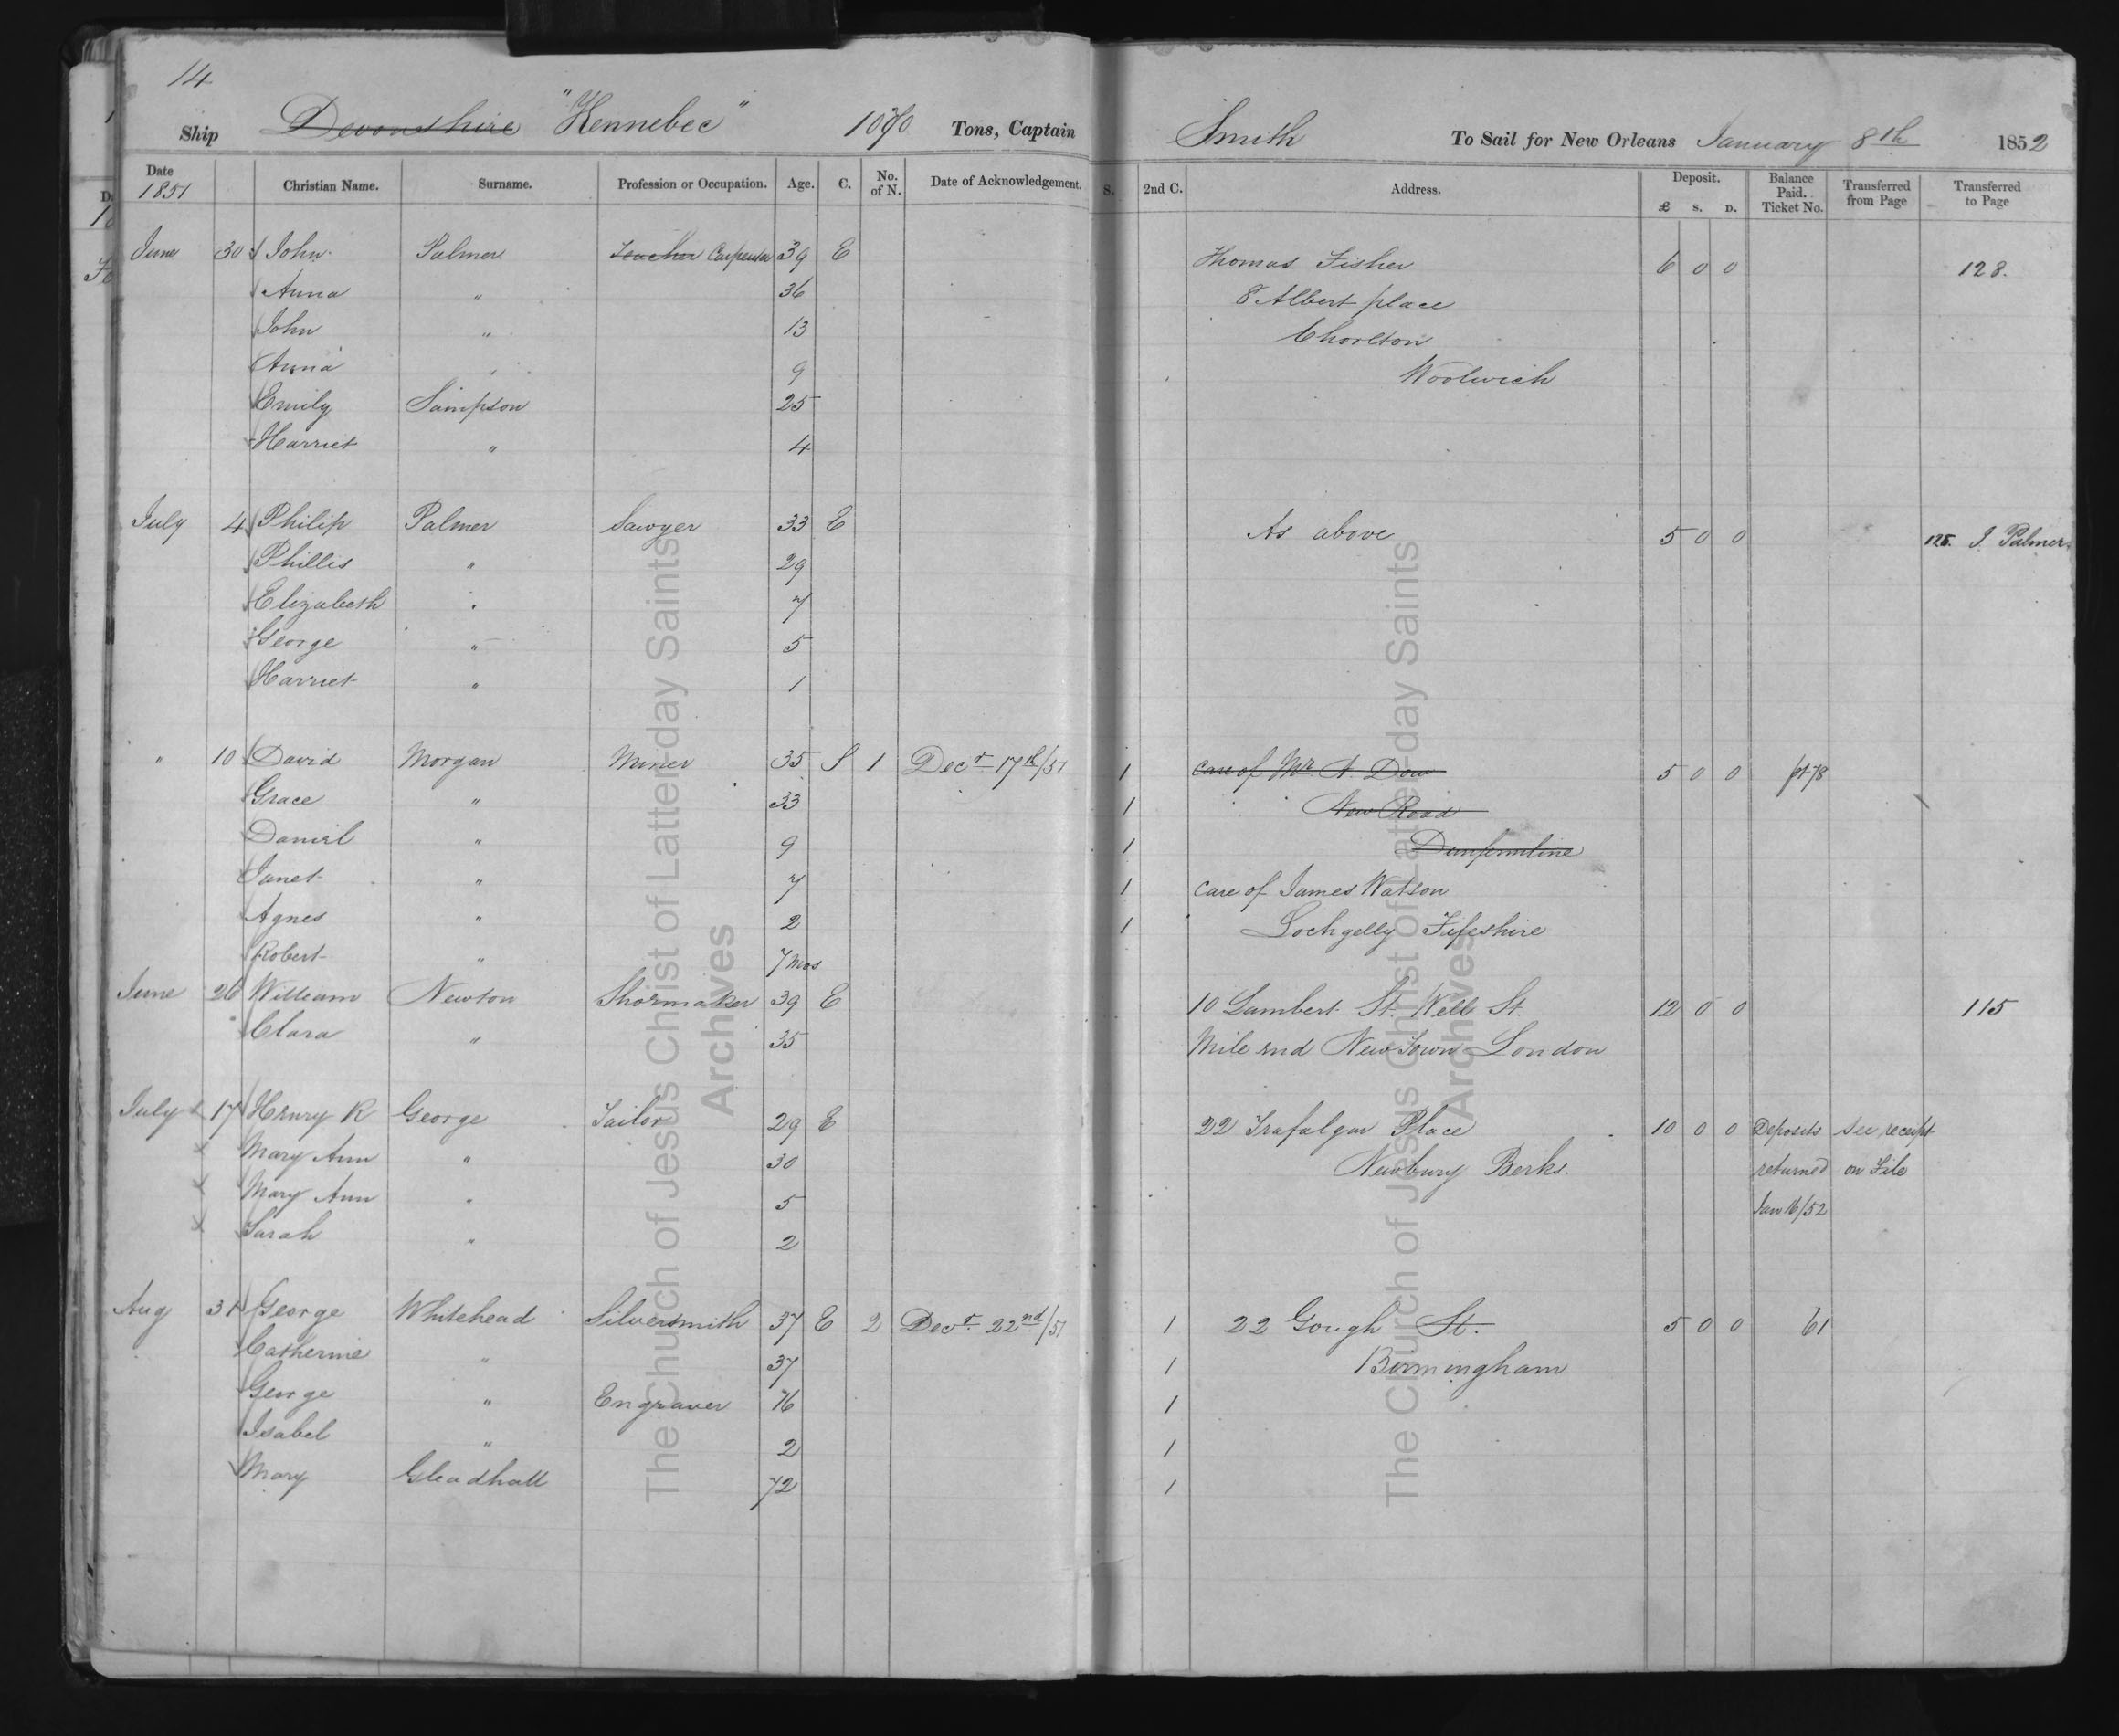 14
Ship Devonshire "Kennebec" 1070 Tons, Captain Smith To Sail for New Orleans January 8th 1852
Date 1851 Christian Name. Surname. Profession or Occupation. Age. C. No. of N. Date of Acknowledgement. S. 2nd C. Address. Deposit. £ S. D. Balance Paid. Ticket No. Transferred from Page Transferred to Page
June 30 John Palmer Teacher Carpenter 39 E Thomas Fisher 6 0 0 128.
Anna " 36 8 Albert place
John " 13 Chorlton
Anna " 9 Woolwich
Emily Sampson 25
Harriet " 4
July 4 Philip Palmer Sawyer 33 E As above 5 0 0 128. J. Palmer
Phillis " 29
Elizabeth " 7
George " 5
Harriet " 1
" 10 David Morgan Miner 35 S 1 Decr 17th/51 1 care of Mr A. Dow 5 0 0 pt 78
Grace " 33 1 New Road
Daniel " 9 1 Dunfermline
Janet " 7 1 care of James Watson
Agnes " 2 1 Lochgelly Fifeshire
Robert " 7 mos
June 26 William Newton Shoemaker 39 E 10 Lambert St. Well St. 12 0 0 115
Clara " 35 Mile end New Town London
July 17 Henry R George Tailor 29 E 22 Trafalgar Place 10 0 0 Deposits see receipt
Mary Ann " 30 Newbury Berks. returned on File
Mary Ann " 5 Jan 16/52
Sarah " 2
Aug 31 George Whitehead Silversmith 37 E 2 Decr. 22nd/51 1 22 Gough St. 5 0 0 61
Catherine " 37 1 Birmingham
George " Engraver 16 1
Isabel " 2 1
Mary Gleadhall 72 1
The Church of Jesus Christ of Latter-day Saints
Archives
The Church of Jesus Christ of Latter-day Saints
Archives